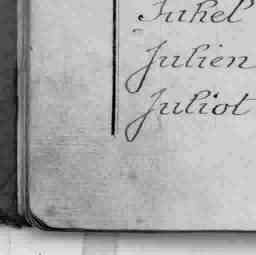 Juhel
Julien
Juliot